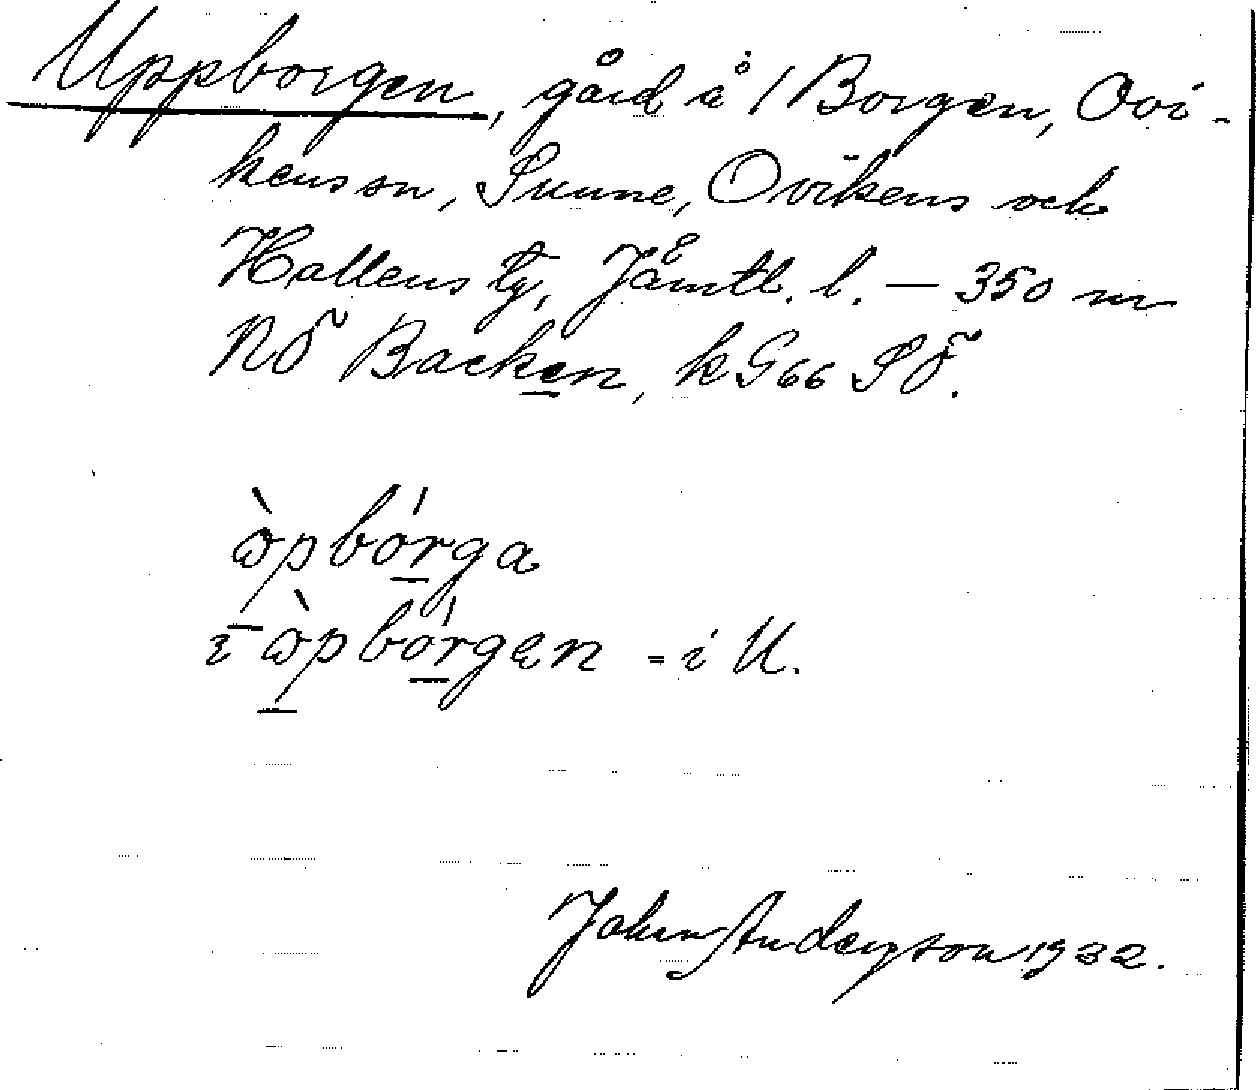 Uppborgen, gård å 1 Borgen, Ovi-
kens sn, Sunne, Ovikens och
Hallens tg, Jämtl. l. — 350 m
NÖ Backen, kG66 SÖ.
ɷ̀pbórga
ɩ ɷ̀pbórgɘn = i U.
Johan Anderson 1932.